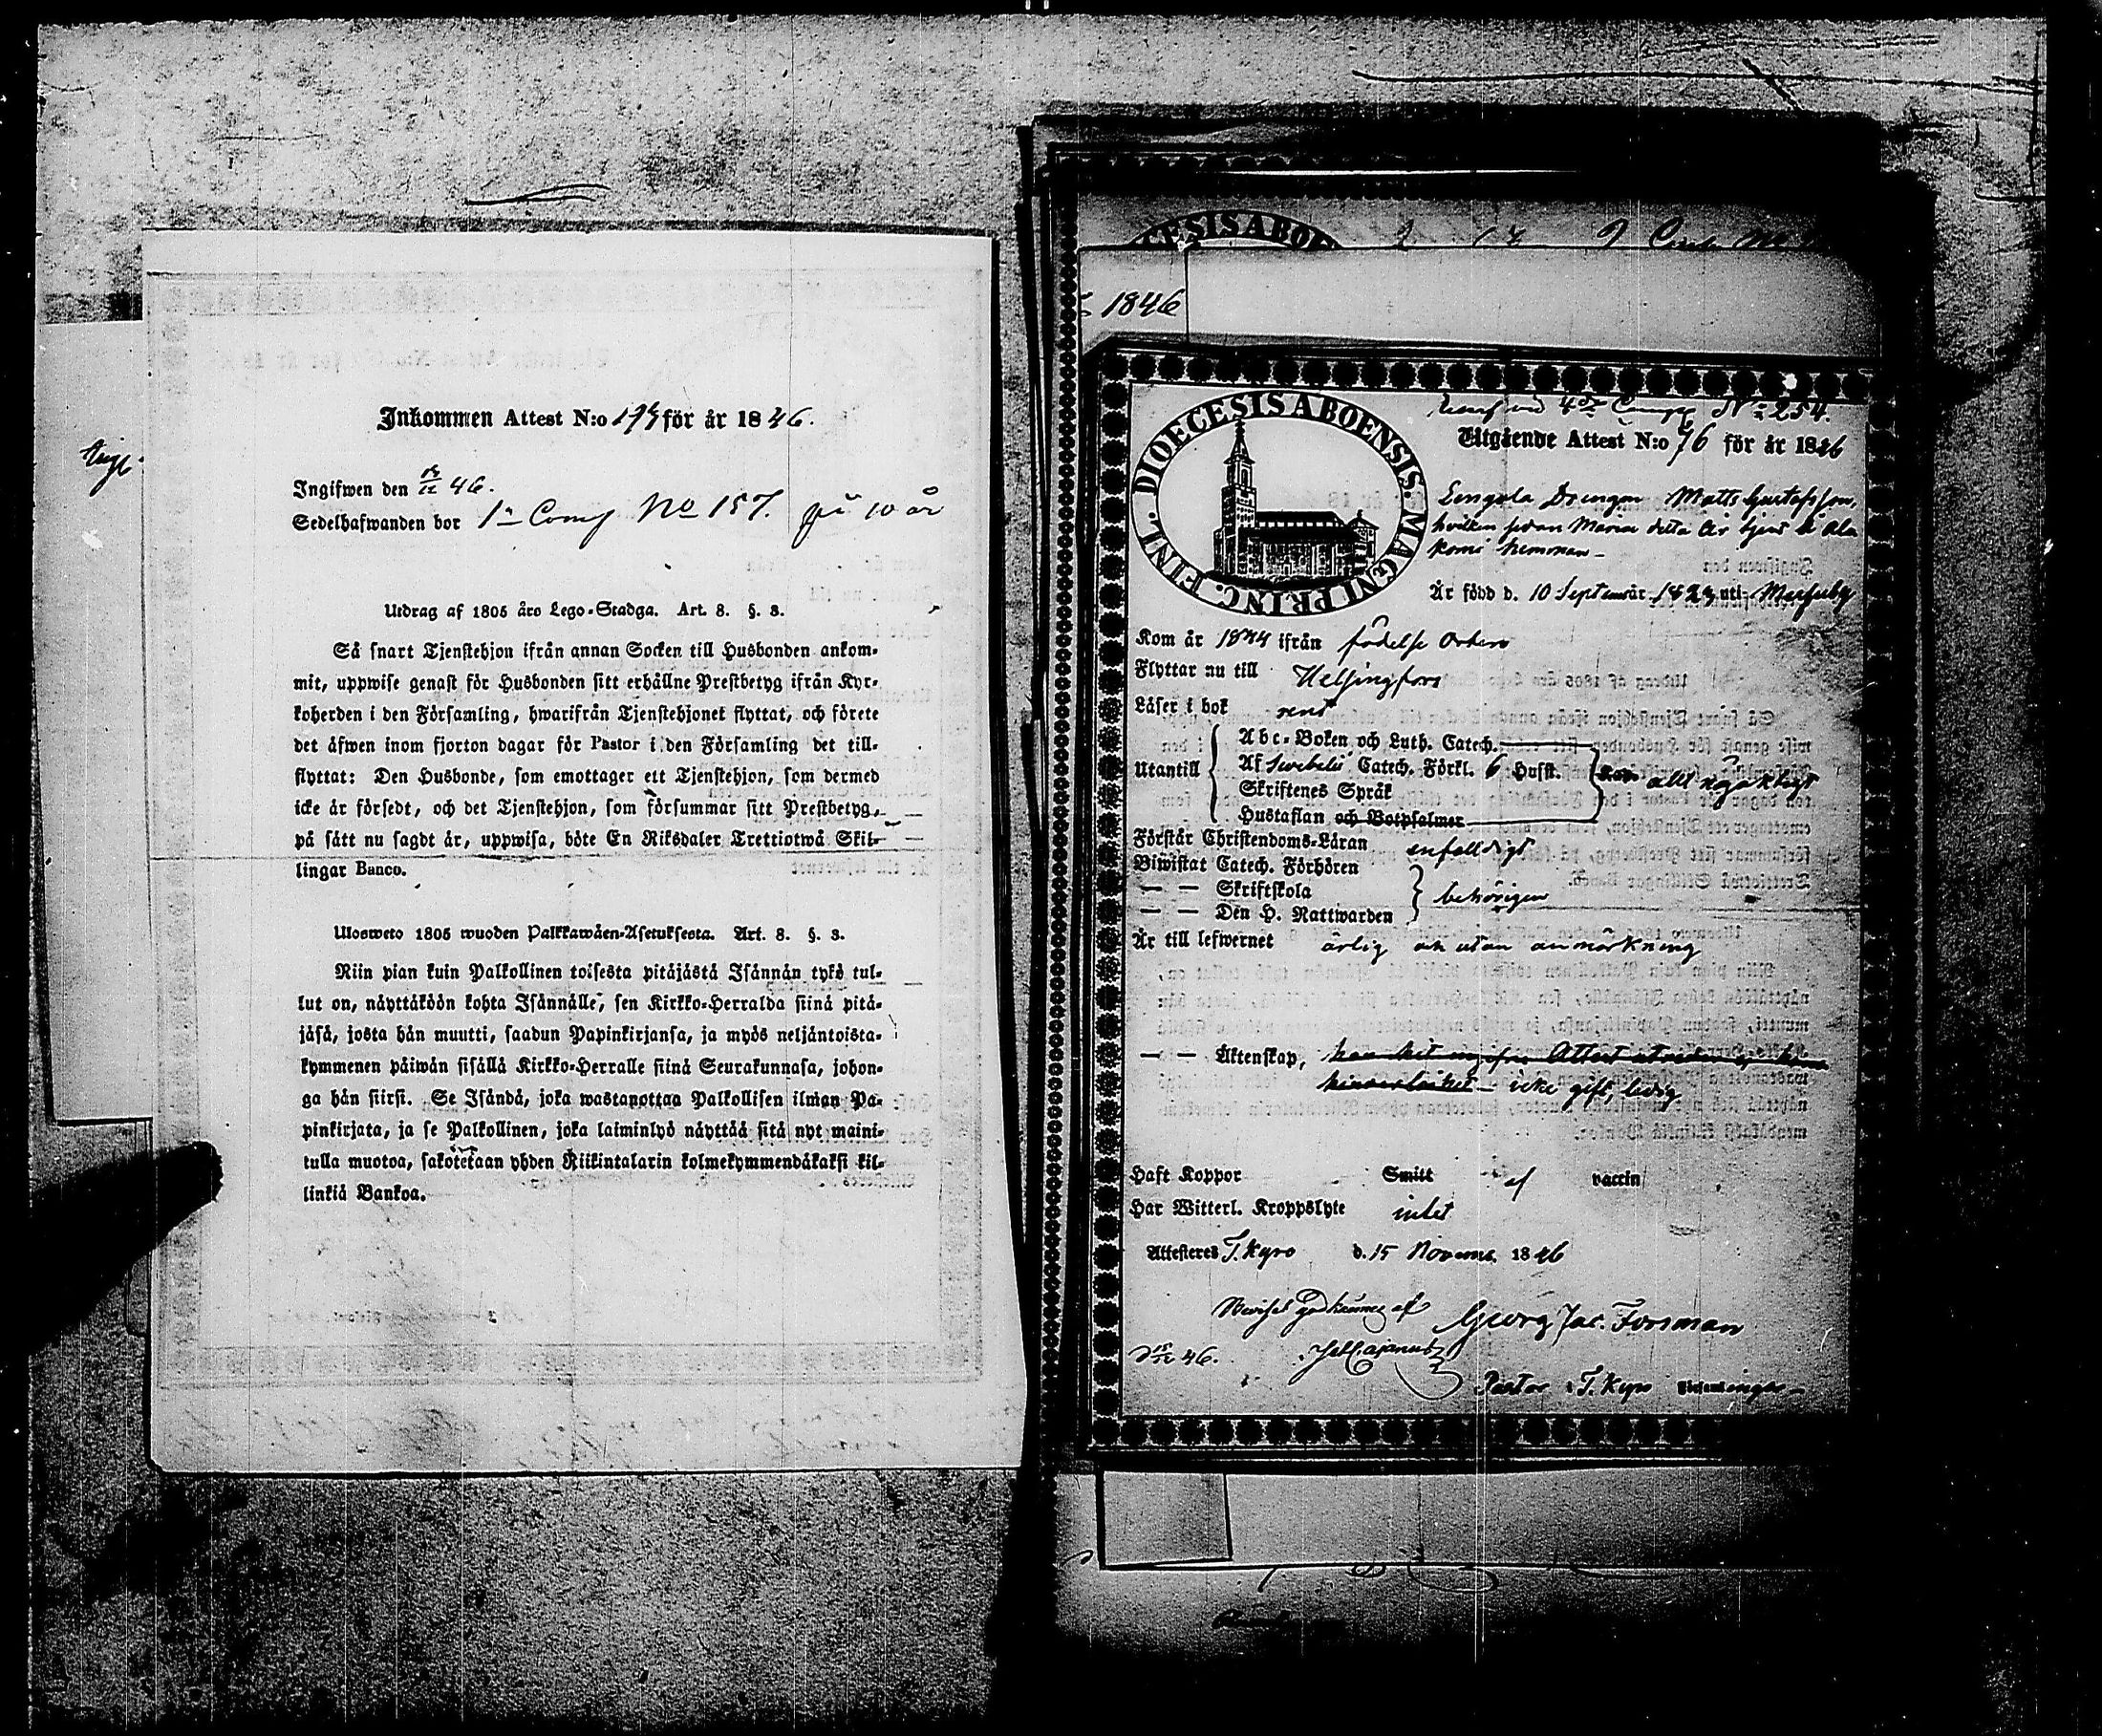 Inkommen Attest N:o för år 1846.
Ingifwen den 46.
Sedelhafwanden bor 1a Comp No 157. på 10 år
Utdrag af 1805 års Lego-Stadga. Art. 8. §. 3.
Så snart Tjenstehjon ifrån annan Socken till Husbonden ankom-
mit, uppwise genast för Husbonden sitt erhållne Prestbetyg ifrån Kyr-
koherden i den Församling, hwarifrån Tjenstehjonet flyttat, och förete
det äfwen inom fjorton dagar för Pastor i den Församling det till-
flyttat: Den Husbonde, som emottager ett Tjenstehjon, som dermed
icke är försedt, och det Tjenstehjon, som försummar sitt Prestbetyg,
på sätt nu sagdt är, uppwisa, böte En Riksdaler Trettiotwå Skil-
lingar Banco.
Ulosweto 1805 wuoden Palkkawäen-Asetuksesta. Art. 8. §. 3.
Niin pian kuin Palkollinen toisesta pitäjästä Isännän tykö tul-
lut on, näyttäköön kohta Isännälle, sen Kirkko-Herralda siinä pitä-
jäsä, josta hän muutti, saadun Papinkirjansa, ja myös neljäntoista-
kymmenen päiwän sisällä Kirkko-Herralle siinä Seurakunnasa, johon-
ga hän siirsi. Se Isändä, joka wastanottaa Palkollisen ilman Pa-
pinkirjata, ja se Palkollinen, joka laiminlyö näyttää sitä nyt maini-
tulla muotoa, sakotetaan yhden Riikintalarin kolmekymmendäkaksi kil-
linkiä Bankoa.
1846
DIOECESIS ABOENSIS. MAGNI PRINC. FINL.
4de N:o 254.
Utgående Attest N:o 76 för år 1846
Drengen Matts Gustafsson,
hvilken sedan Maria detta År tjent å Ala
hemman
Är född d. 10 September 1823 uti
Kom år 1844 ifrån födelse Orten
Flyttar nu till Helsingfors
Läser i bok rent
Utantill
Abc-Boken och Luth. Catech.
Af Swebelii Catech. Förkl. 6 Hufst. allt
Skriftenes Språk
Hustaflan och Botpsalmer
Förstår Christendoms-Läran enfaldigt
Biwistat Catech. Förhören
— — Skriftskola behörigen
— — Den H. Nattwarden
Är till lefwernet ärlig och utan anmärkning
— — Äktenskap,
icke gift, ledig
Haft Koppor Smitt af vaccin
Har Witterl. Kroppslyte intet
Attesteres T. Kyro d. 15 November 1846
Beviset godkännes af Georg Jac. Forsman
46.
Pastor i T. Kyro